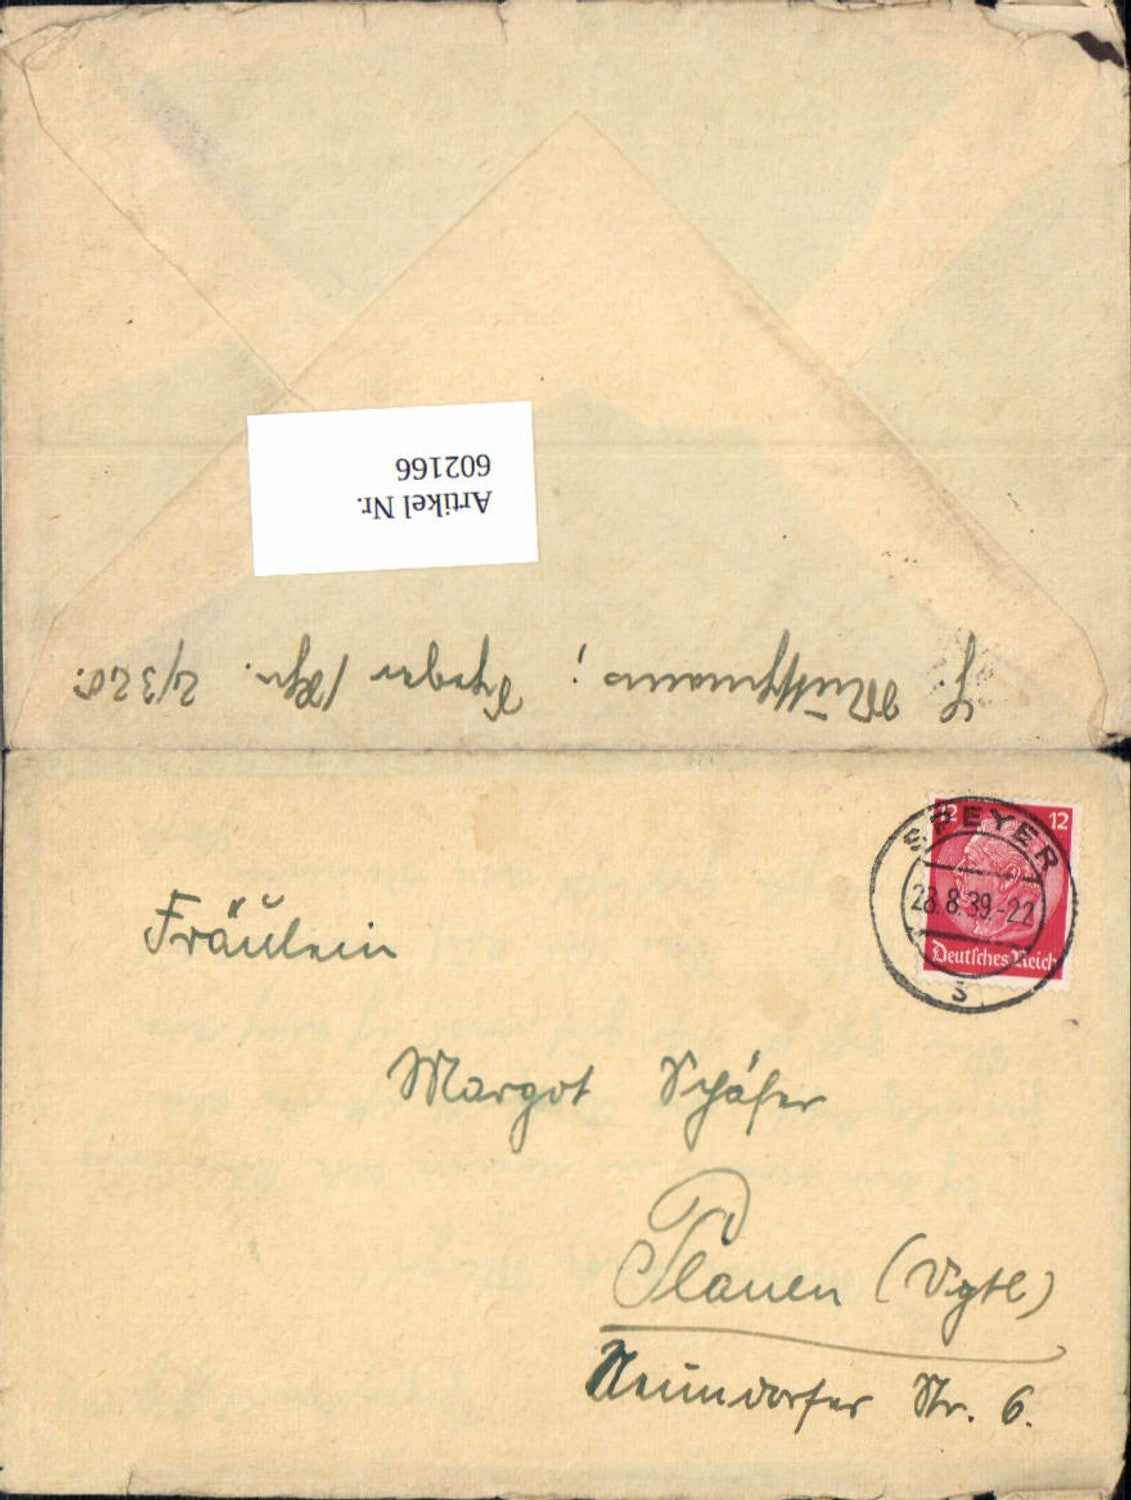 Artikel Nr.
602166
Speyer 2/320.
12 12
SPEYER
28.8.39.-22
Deutsches Reich
s
Fräulein
Margot Schäfer
Plauen (Vgtl)
Neundorfer Str. 6.